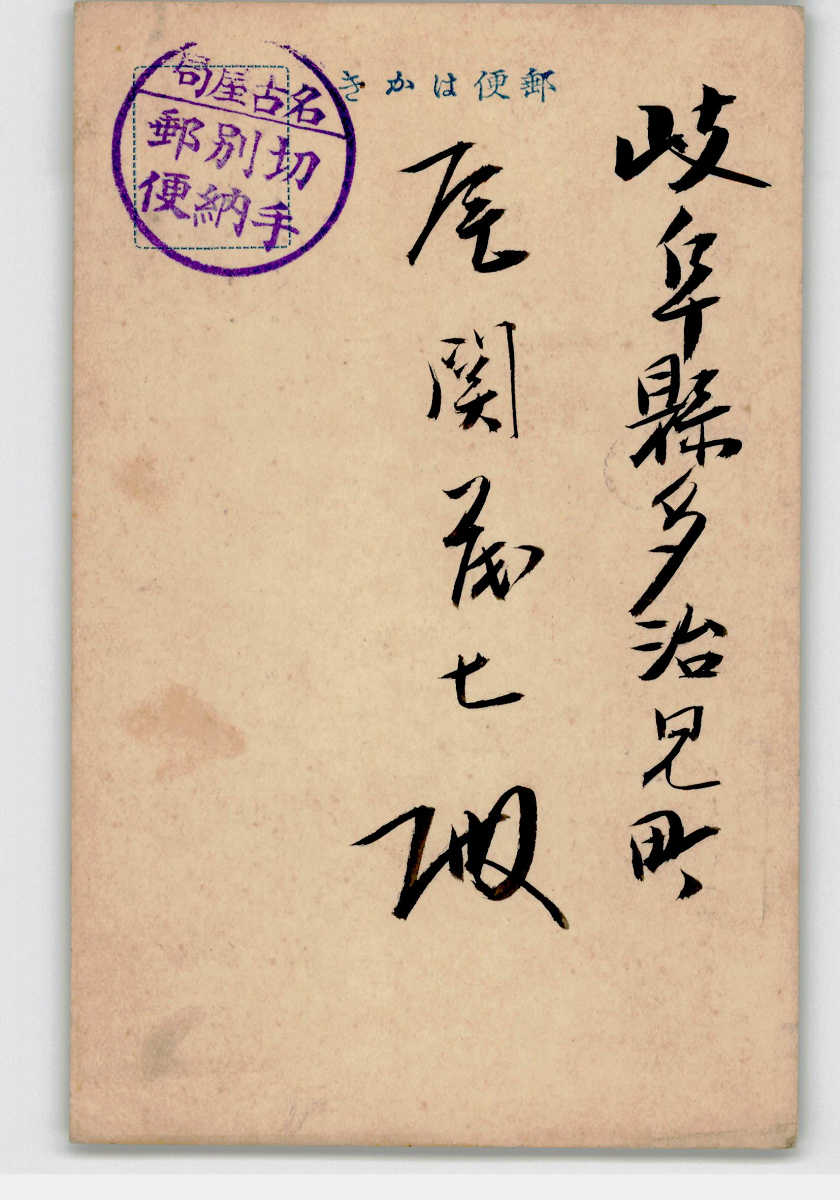 郵便はかき
岐阜縣多治見町
尾関茂七殿
名古屋局
切手
別納
郵便